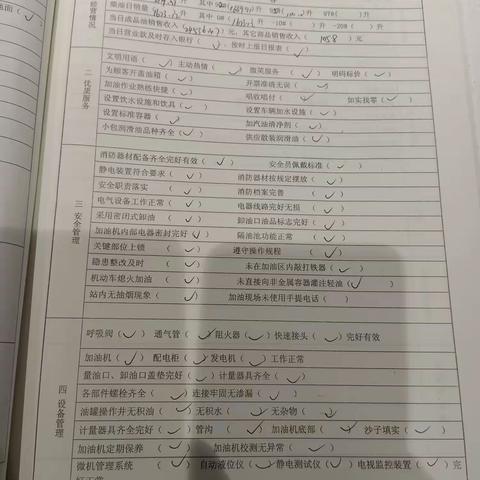 当日成品油销售收入( )元，其它商品销售收入( 1058 )元
当日营业款及时存入银行(✓)，按时上报日报表(✓)
二 优质服务
文明用语(✓) 主动热情(✓) 微笑服务(✓) 明码标价(✓)
为顾客开盖油箱(✓) 开票准确无误(✓)
加油作业熟练快捷(✓) 唱收唱付(✓) 如实找零(✓)
设置饮水设施和饮具(✓) 设置车辆加水设施(✓)
设置标准容器(✓) 加汽油清净剂(✓)
小包润滑油品种齐全(✓) 供应散装润滑油(✓)
三 安全管理
消防器材配备齐全完好有效(✓) 安全员佩戴标准(✓)
静电装置符合要求(✓) 消防器材按规定摆放(✓)
安全职责落实(✓) 消防档案完善(✓)
电气设备工作正常(✓) 电器线路完好无损(✓)
采用密闭式卸油(✓) 卸油口油品标志完好(✓)
加油机内部电器密封完好(✓) 隔油池功能正常(✓)
关键部位上锁(✓) 遵守操作规程(✓)
隐患整改及时(✓) 未在加油区内敲打铁器(✓)
机动车熄火加油(✓) 未直接向非金属容器灌注轻油(✓)
站内无抽烟现象(✓) 加油现场未使用手提电话(✓)
四 设备管理
呼吸阀(✓) 通气管(✓)阻火器(✓)快速接头(✓)完好有效
加油机(✓) 配电柜(✓)发电机(✓)工作正常
量油口、卸油口盖垫完好(✓)计量器具齐全(✓)
各部件螺栓齐全(✓)连接牢固无渗漏(✓)
油罐操作井无积油(✓)无积水(✓)无杂物(✓)
计量器具齐全完好(✓)管沟(✓)加油机底部(✓)沙子填实(✓)
加油机定期保养(✓) 加油机校测无异常(✓)
微机管理系统(✓) 自动液位仪(✓)静电测试仪(✓)电视监控装置(✓)完